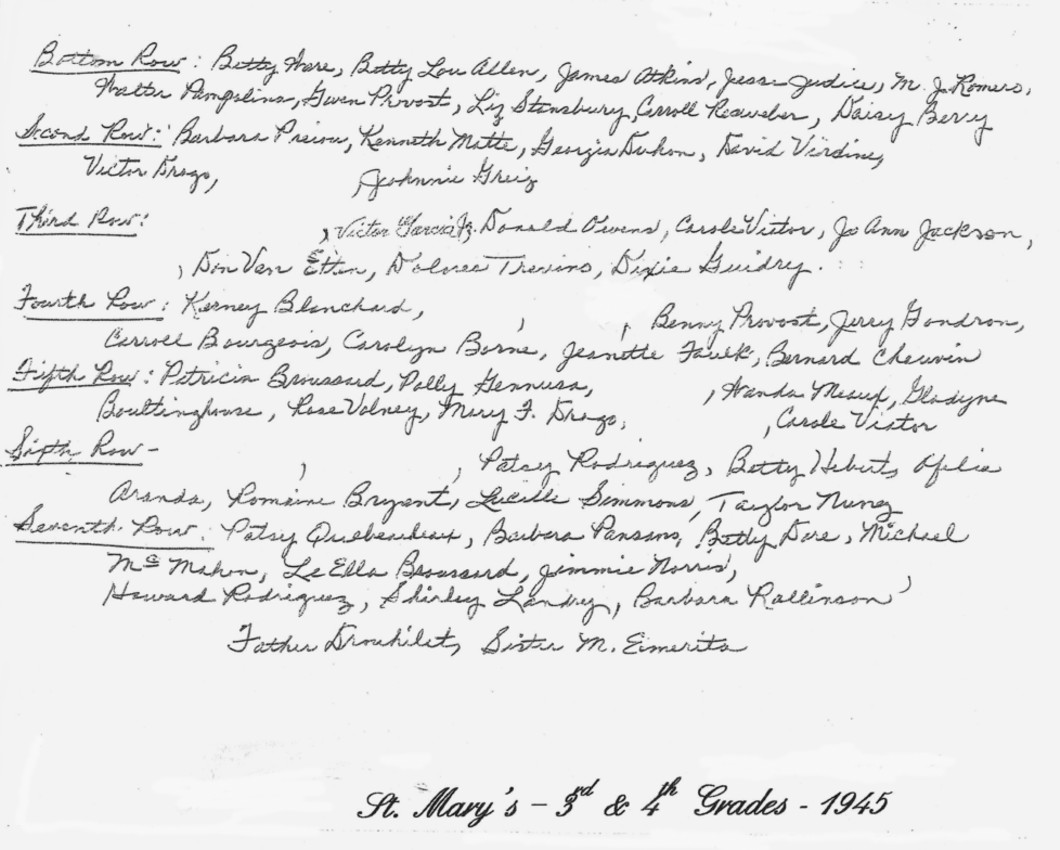 Bottom Row: Betty Ware, Betty Lou Allen, James Atkins, Jesse Judice, M. J. Romero,
Walter Pampolina, Gwen Provost, Liz Stansbury, Carroll Reaweber, Daisy Berry
Second Row: Barbara Preiou, Kenneth Matte, Georgia Duhon, David Verdine,
Victor Drago, Johnnie Greig
Third Row: , Victor Garcia Jr. Donald Owens, Carole Victor, Jo Ann Jackson,
, Don Van Etten, Dolores Trevino, Dixie Guidry.
Fourth Row: Kerney Blanchard, , , Benny Provost, Jerry Gondron,
Carroll Bourgeois, Carolyn Borne, Jeanette Faulk, Bernard Chauvin
Fifth Row: Patricia Broussard, Polly Gennusa, , Wanda Meaux, Gladyne
Boultinghouse, Rose Volney, Mary F. Drago, , Carole Victor
Sixth Row -
, , Patsy Rodriguez, Betty Hebert, Ofelia
Aranda, Romaine Bryant, Lucille Simmons, Taylor Nunez
Seventh Row: Patsy Quebeaudeaux, Barbara Parsons, Betty Dore, Michael
Mc Mahon, LeElla Broussard, Jimmie Norris, ,
Howard Rodriguez, Shirley Landry, Barbara Rollinson
Father Drouhilet, Sister M. Eimerita
St. Mary's - 3rd & 4th Grades - 1945